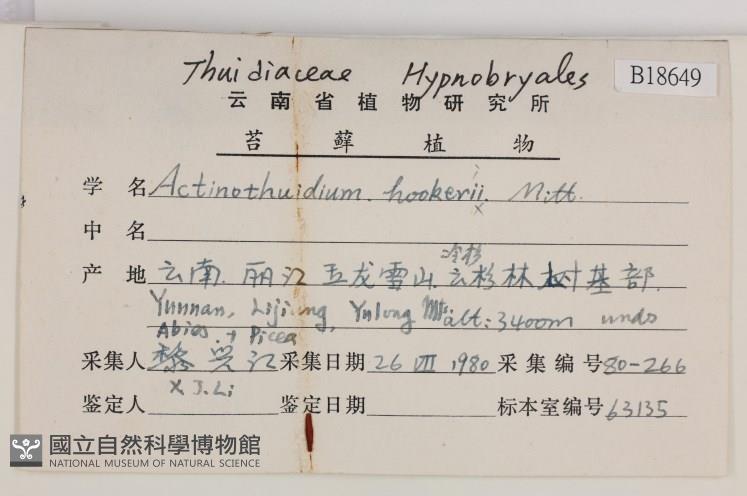 Thuidiaceae Hypnobryales B18649
云南省植物研究所
苔藓植物
学名 Actinothuidium. hookerii. Mitt.
中名
冷杉
产地 云南. 丽江 玉龙雪山. 云杉林 树基部.
Yunnan, Lijiang, Yulong Mts alt: 3400m unds
Abies + Picea
采集人 黎兴江 采集日期 26 VIII 1980 采集编号 80-266
X J. Li
鉴定人 鉴定日期 标本室编号 63135
國立自然科學博物館
NATIONAL MUSEUM OF NATURAL SCIENCE